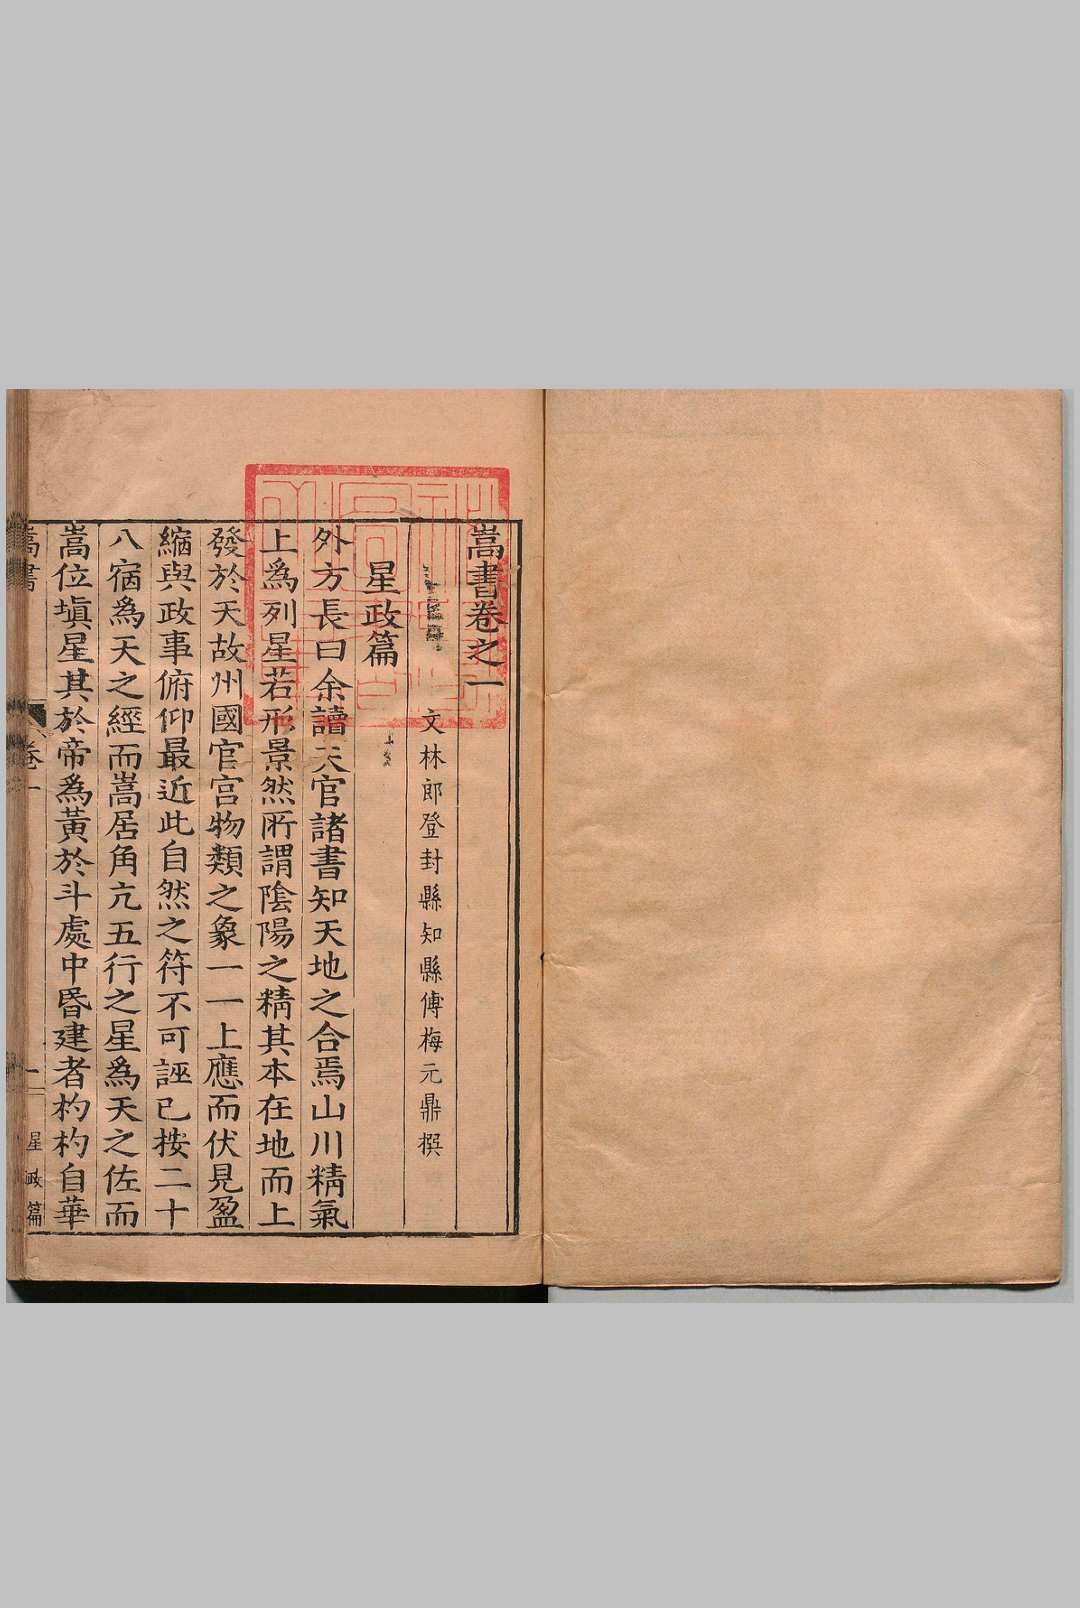 嵩書卷之一
文林郎登封縣知縣傅梅元鼎撰
星政篇
外方長曰余讀天官諸書知天地之合焉山川精氣
上爲列星若形景然所謂陰陽之精其本在地而上
發於天故州國官宫物類之象一一上應而伏見盈
縮與政事俯仰最近此自然之符不可誣已按二十
八宿爲天之經而嵩居角亢五行之星爲天之佐而
嵩位塡星其於帝爲黃於斗處中昏建者杓杓自華
嵩書 卷一 一 星政篇